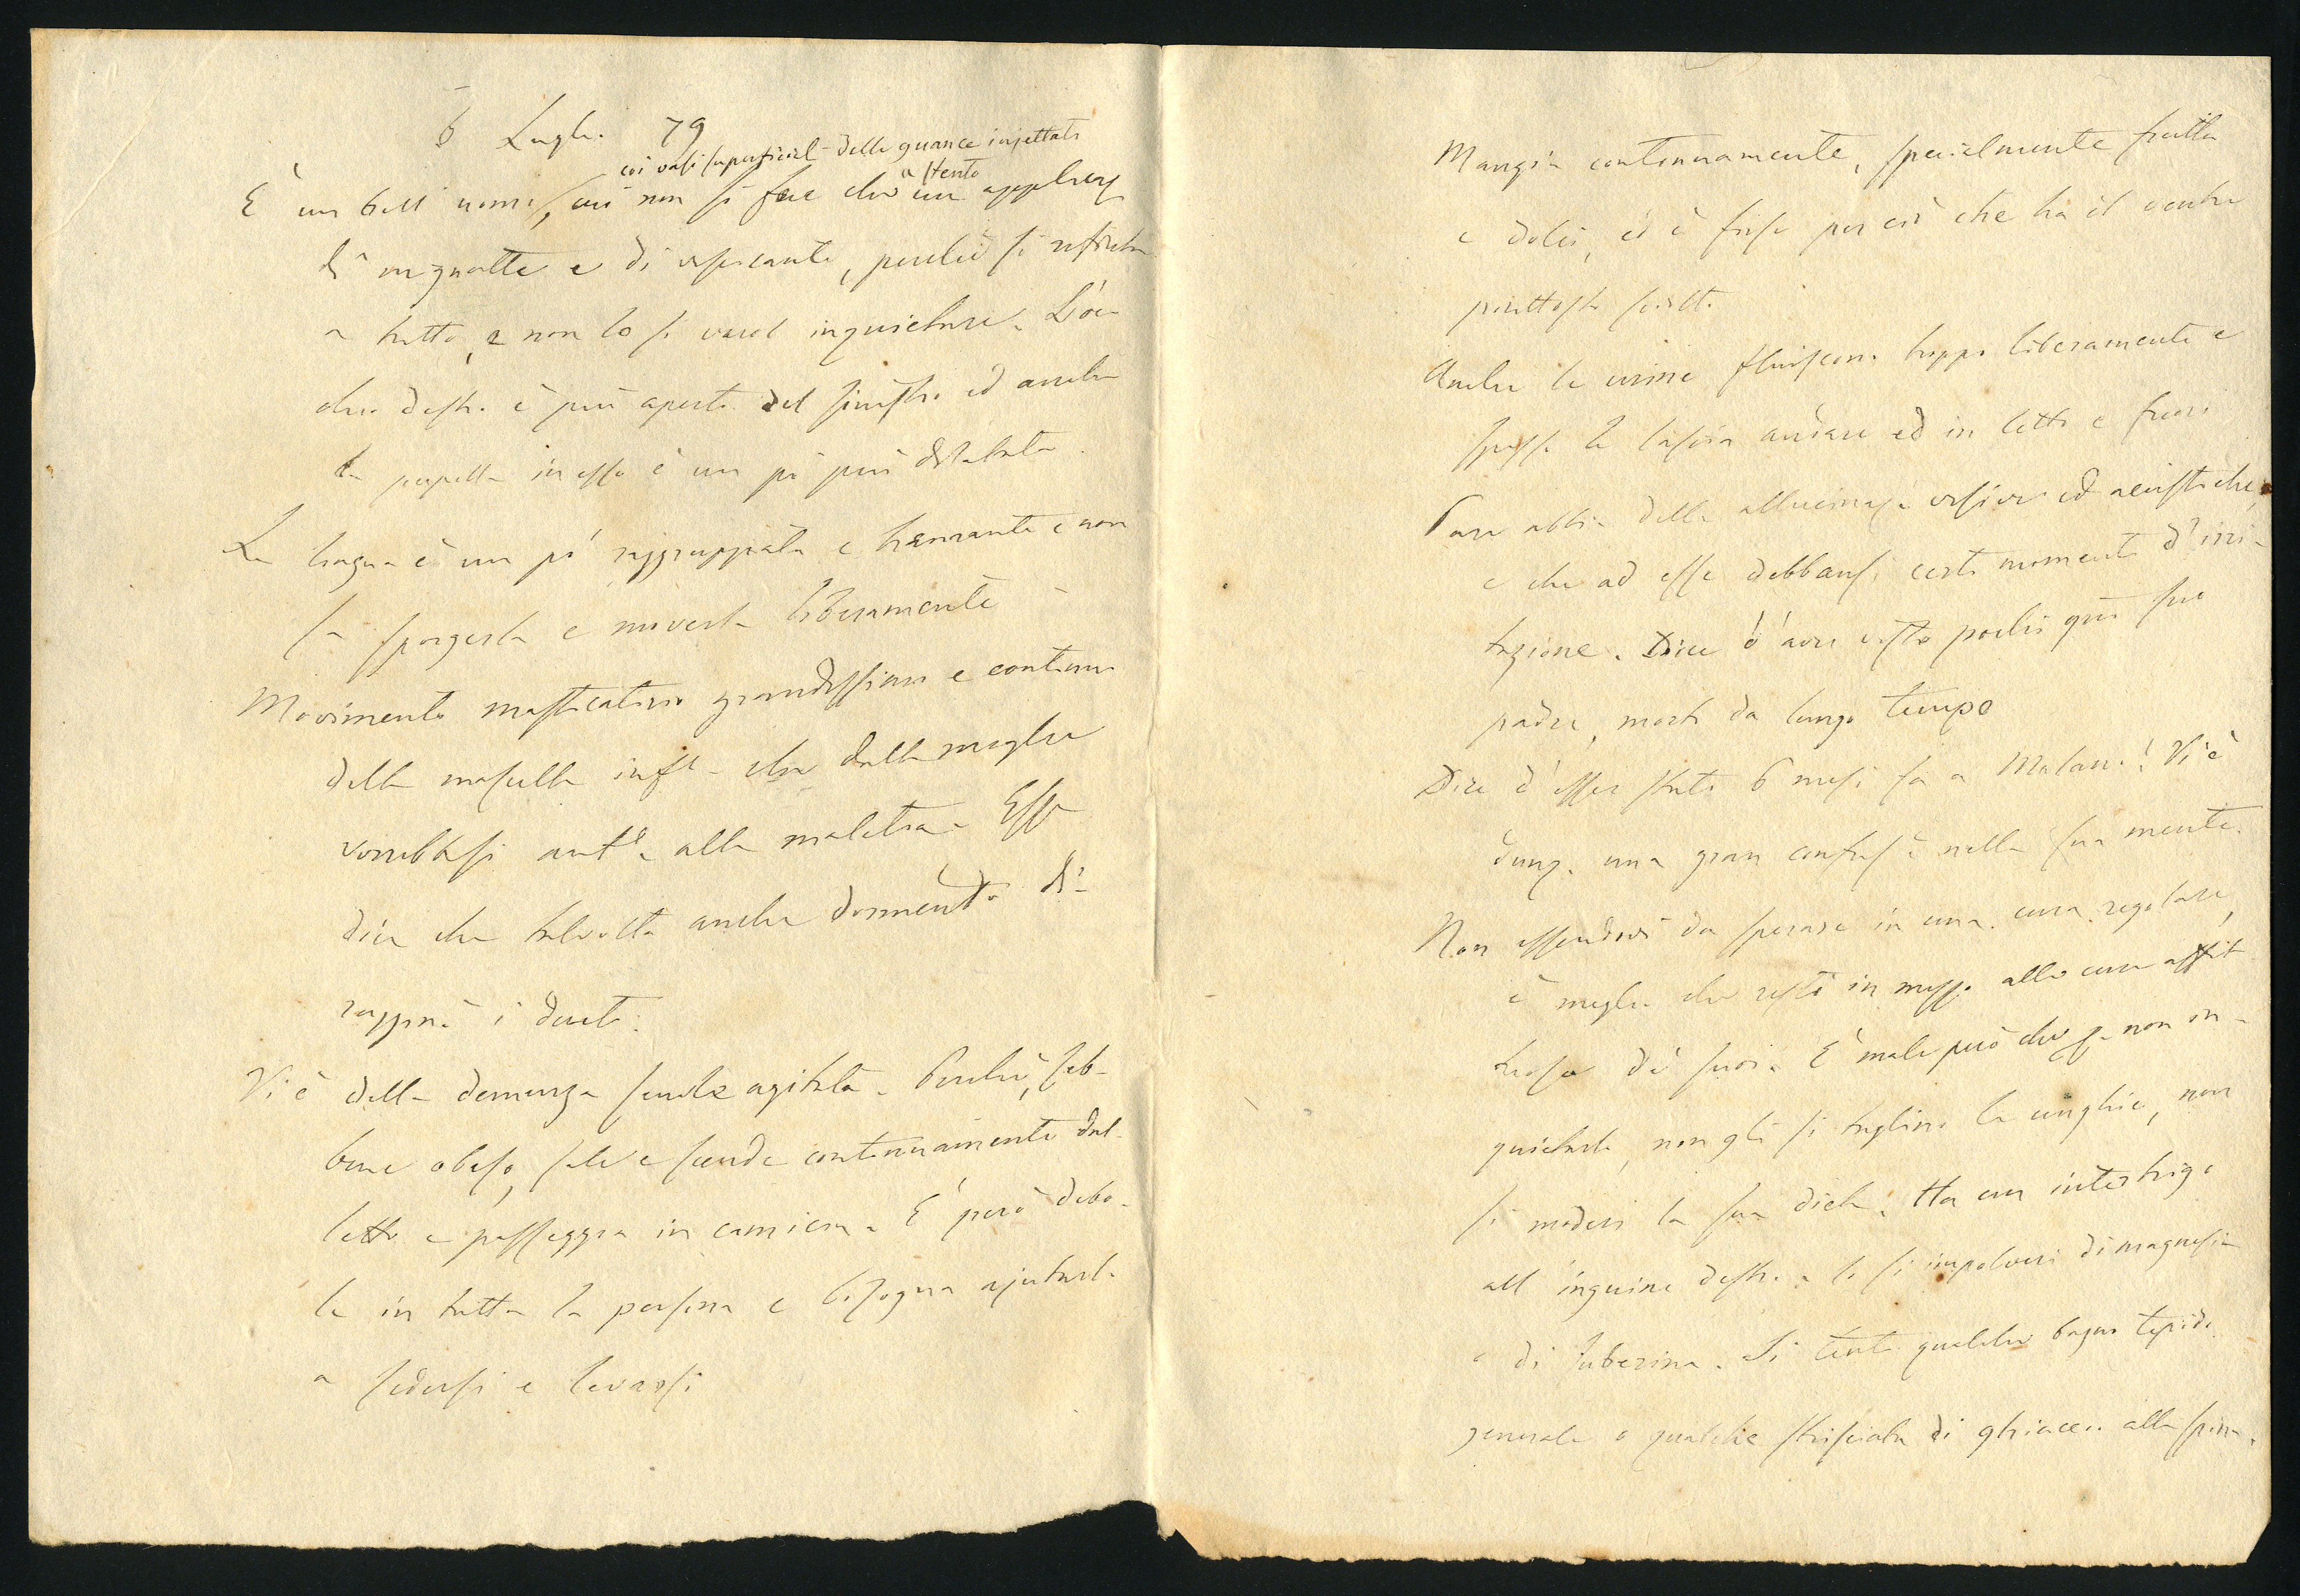 6 Luglio 79
coi vasi superficiali delle guance injettati
È un bell' uomo, cui non si fece che a stento un applicaz
di mignatte e di vescicante, perchè si rifiuta
a tutto, e non lo si vuol inquietare. L'oc-
chio destro è più aperto del sinistro ed anche
la pupilla in esso è un pò più dilatata.
La lingua è un pò raggruppata e tremante e non
sa sporgerla e moverla liberamente
Movimento masticatorio grandissimo e continuo
della mascella infe che dalla moglie
vorrebbesi ante alla malattia. Esso
dice che talvolta anche dormendo di-
i denti.
Vi è della demenza senile agitata. Perchè, seb-
bene obeso, sale e scende continuamente dal
letto e passeggia in camicia. È però debo-
le in tutta la persona e bisogna ajutarlo
a sedersi e levarsi
Mangia continuamente, specialmente frutta
e dolci, ed è forse per ciò che ha il ventre
piuttosto sciolto
Anche le urine fluiscono troppo liberamente e
spesso le lascia andare ed in letto e fuori
Pare abbia delle allucinaze visive ed acustiche,
e che ad esse debbansi certi momenti d'irri-
tazione. Dice d'aver visto pochi gni fa suo
padre, morto da lungo tempo
Dice d'esser stato 6 mesi fa a Milano! Vi è
dunq. una gran confuse nella sua mente.
Non essendovi da sperare in una cura regolare,
è meglio che resti in mezzo alle cure affet
tuose de' suoi. È male però che p. non in-
quietarlo, non gli si taglino le unghie, non
si moderi la sua dieta. Ha un intertrigo
all' inguine destro. lo si impolveri di magnesia
o di suberina. Si tenti qualche bagno tepido
generale o qualche strisciata di ghiaccio alla spina.